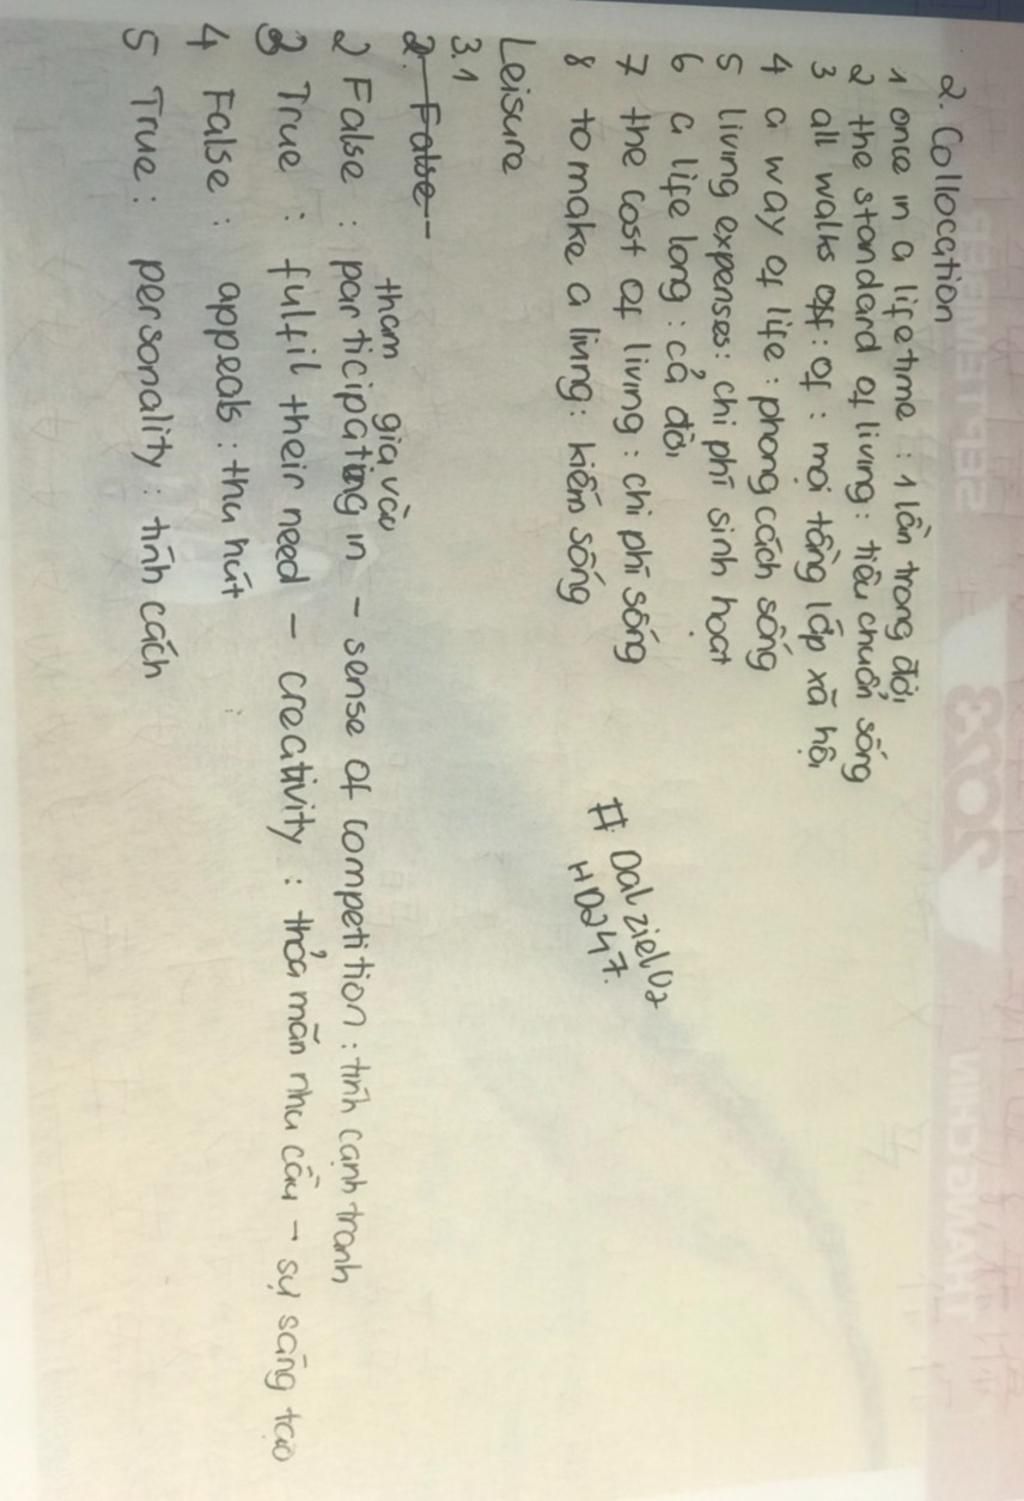 2. Collocation
1 once in a lifetime : 1 lần trong đời
2 the standard of living : tiêu chuẩn sống
3 all walks off : of : mọi tầng lớp xã hội
4 a way of life : phong cách sống
5 living expenses : chi phí sinh hoạt
6 a life long : cả đời
7 the cost of living : chi phí sống
8 to make a living : kiếm sống
# Dalziel02
HD247.
Leisure
3.1
2. False
tham gia vào
2 False : participating in – sense of competition : tính cạnh tranh
3 True : fulfil their need – creativity : thỏa mãn nhu cầu – sự sáng tạo
4 False : appeals : thu hút
5 True : personality : tính cách
SEPTEMBER
2023
THANG CHIN